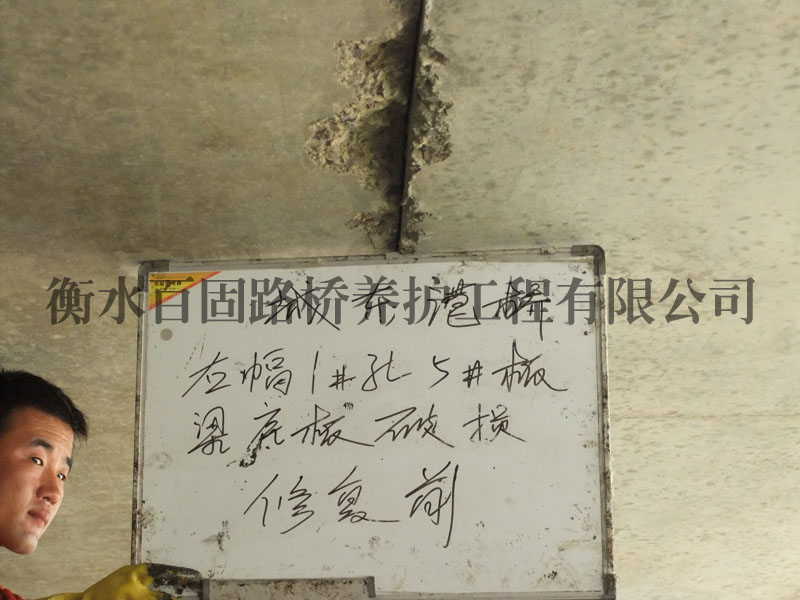 衡水百固路桥养护工程有限公司
右幅1#孔5#板
梁底板破损
修复前